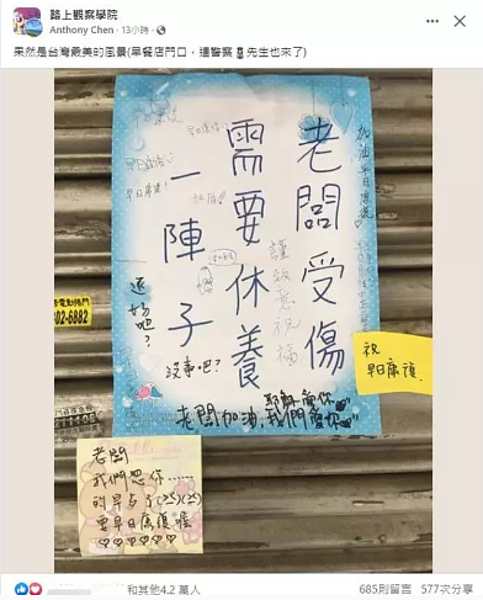 路上觀察學院
Anthony Chen · 13小時 ·
果然是台灣最美的風景(早餐店門口，連警察先生也來了)
老闆受傷
需要休養
一陣子
加油 早日康復
早日康復
早日康復!
加油
謹致意祝福
還好吧?
沒事吧?
耶穌愛你
老闆加油,我們愛你
祝
早日康復
02-6882
老闆
我們想你......
的早点了
要早日康復喔
和其他4.2 萬人
685則留言 577次分享